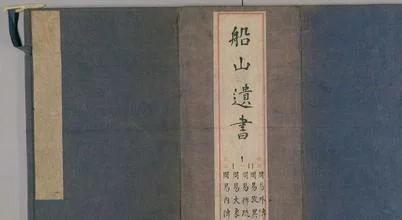 船山遺書
周易外傳
周易攷異
周易稗疏
周易大象
周易內傳